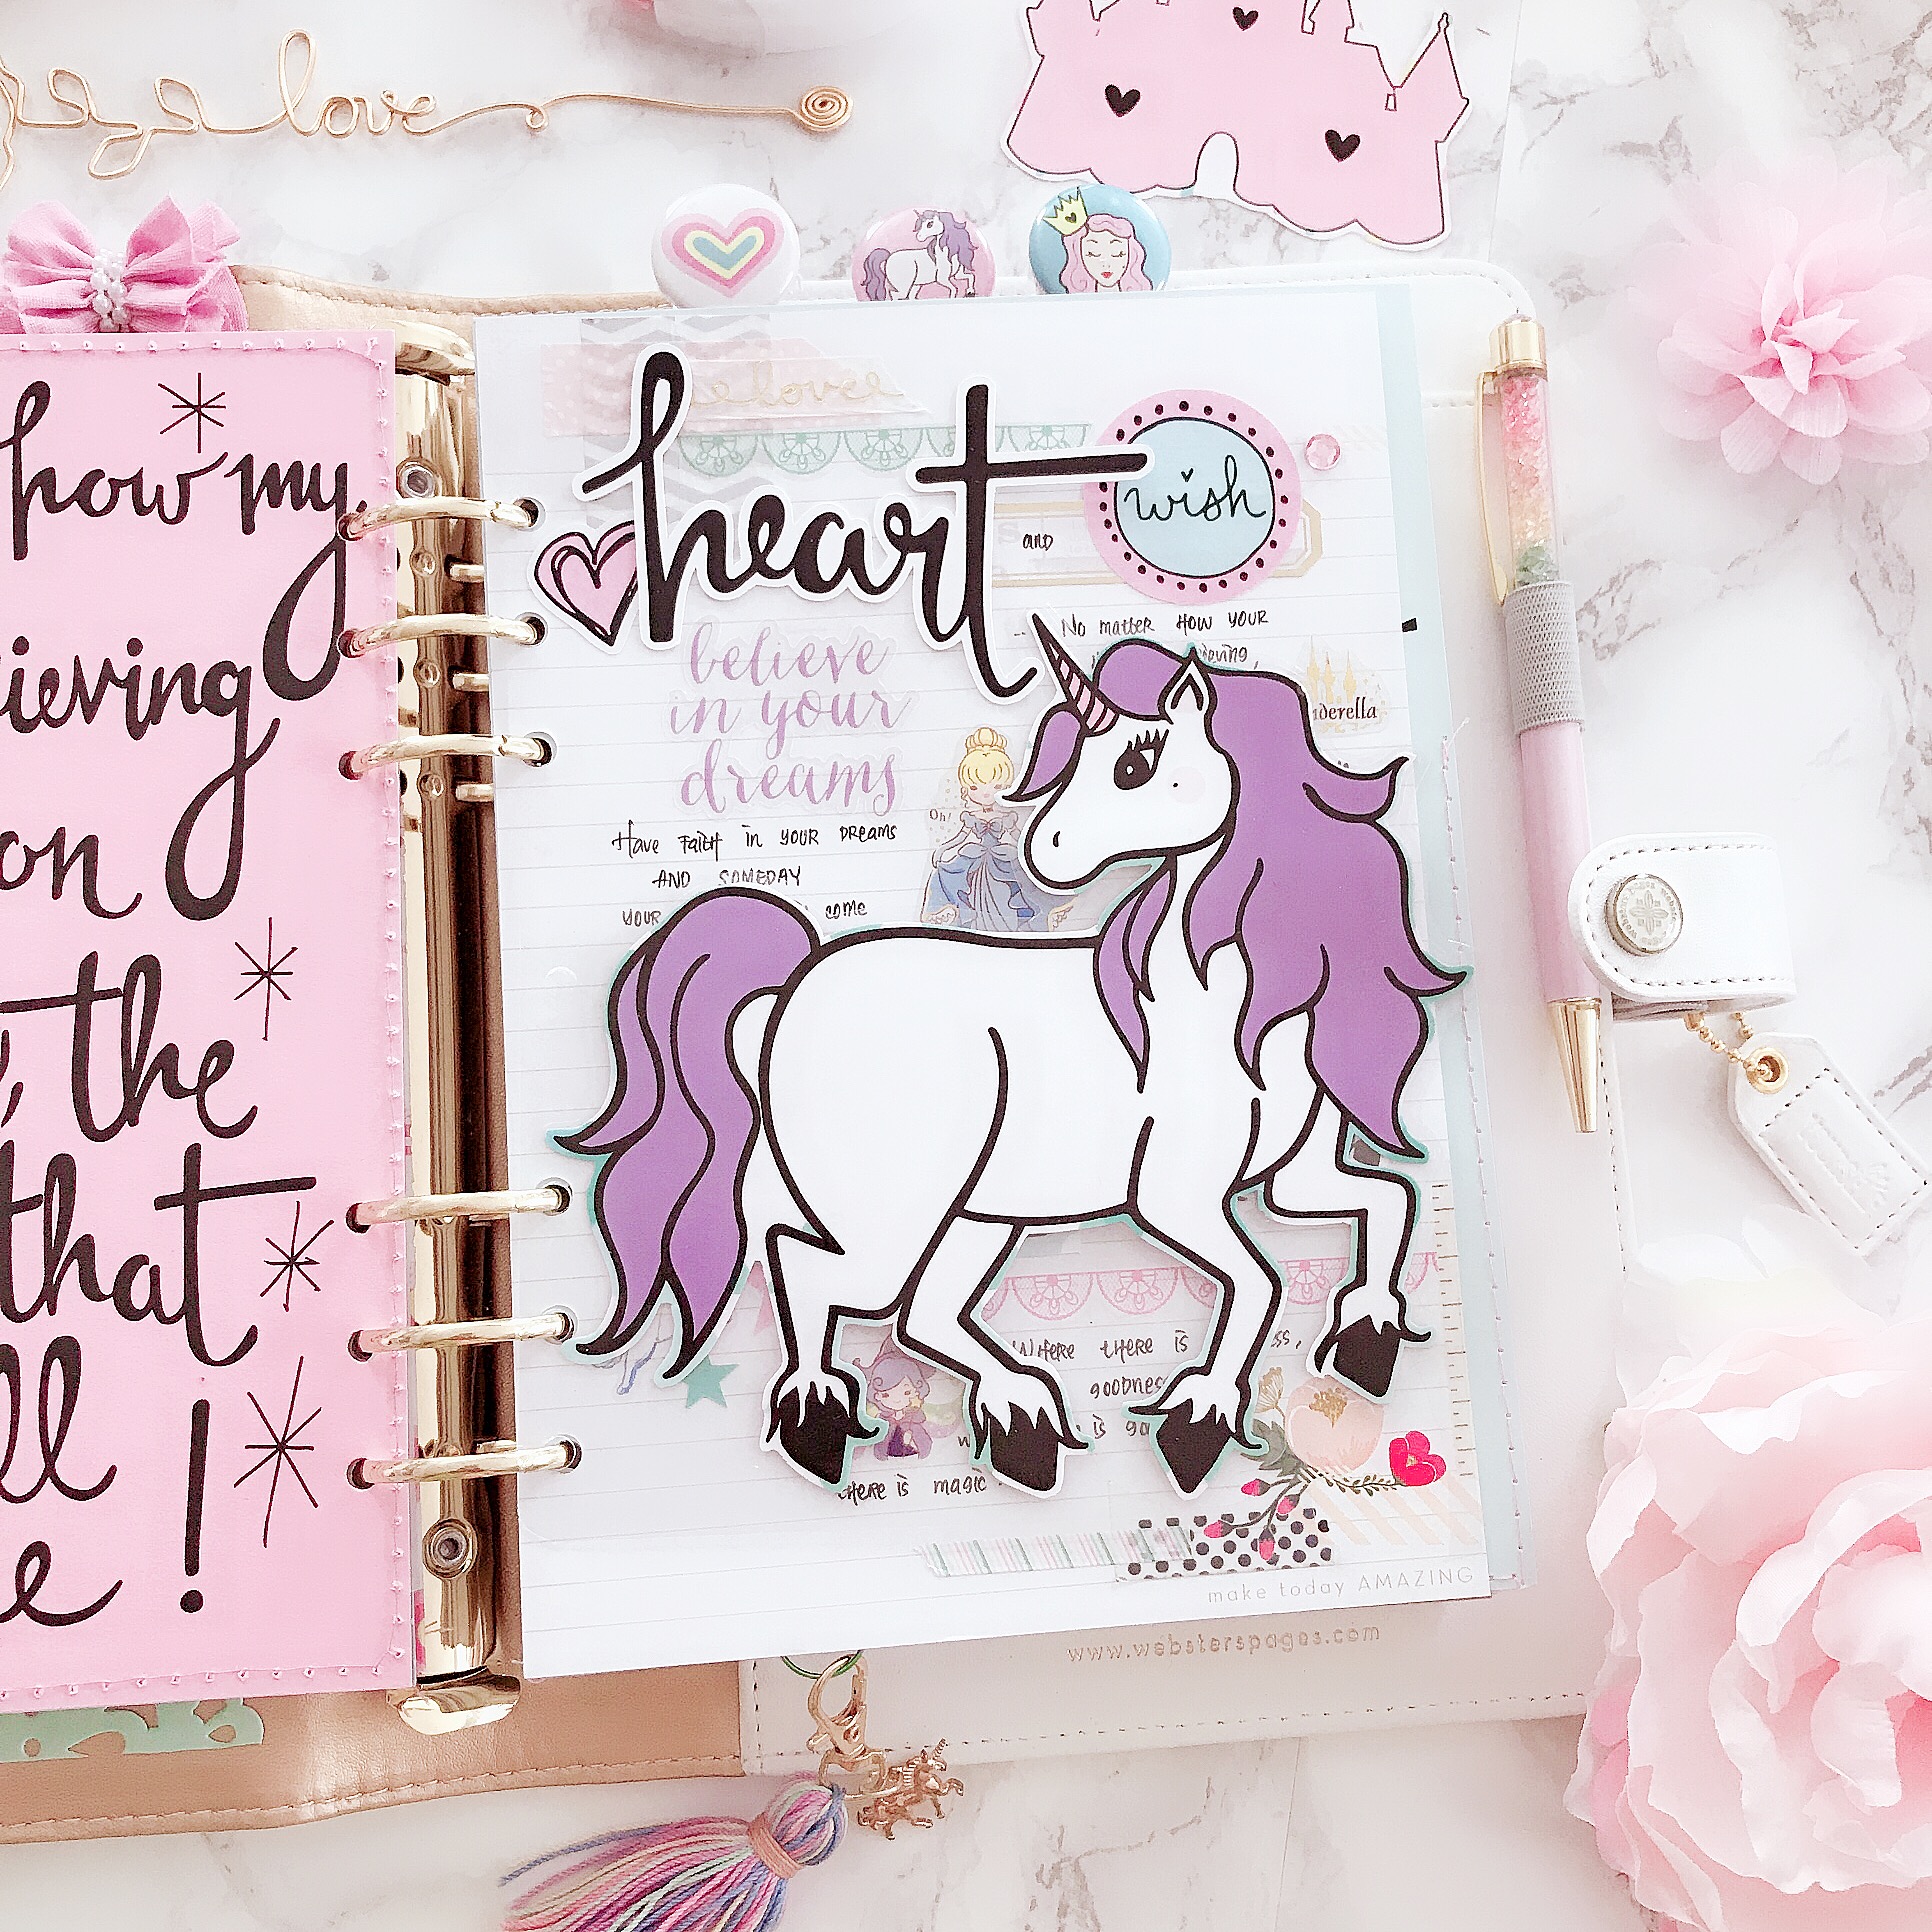 love
how my
ieving
on
the
that
ll
e!
love
heart
and
wish
believe
in your
dreams
No matter how your
ieving,
nderella
Oh!
Have Faith in your Dreams
AND SOMEDAY
your
come
Where there is
ss,
goodness
is go
there is magic
make today AMAZING
www.websterspages.com